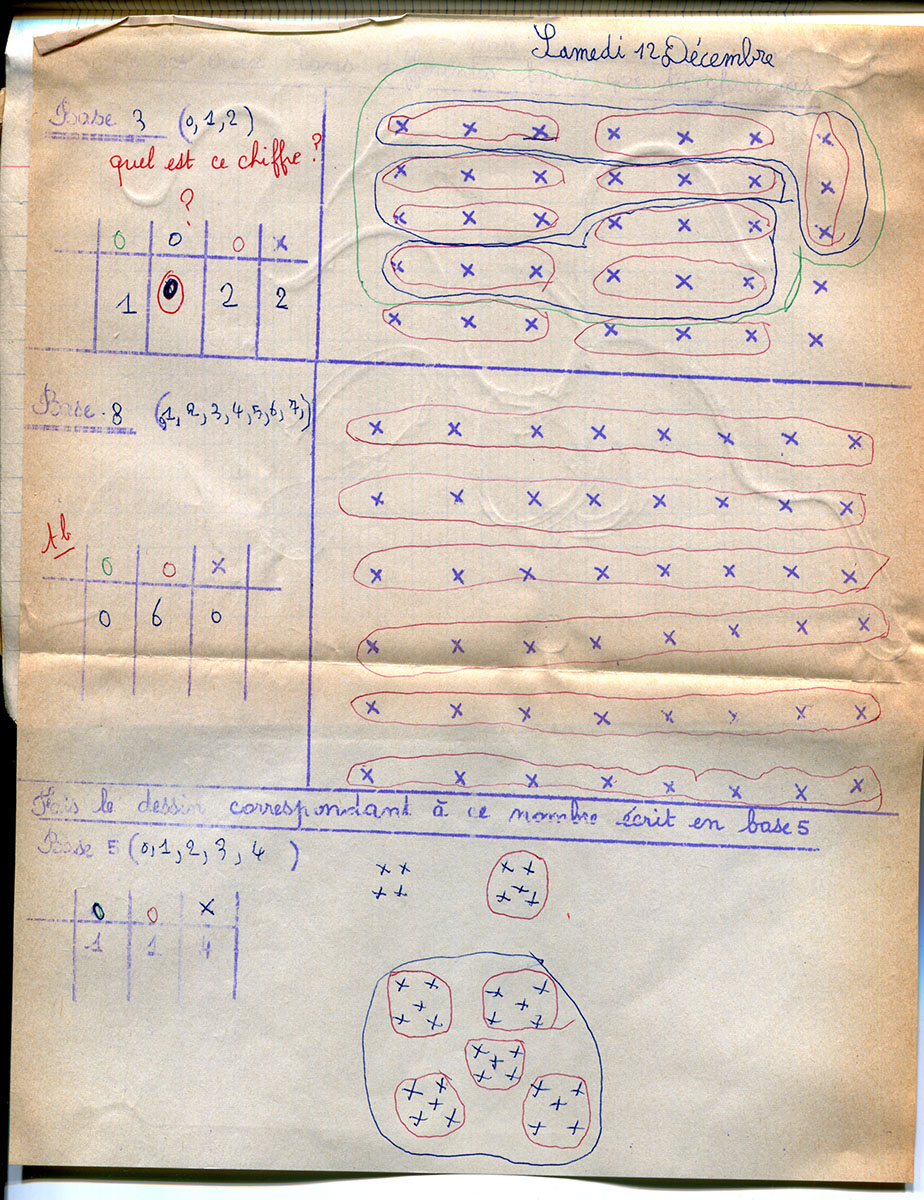 Samedi 12 Décembre
Base 3 (0,1,2)
quel est ce chiffre ?
?
0 0 0 x
1 0 2 2
Base 8 (0,1,2,3,4,5,6,7,)
tb
0 0 x
0 6 0
Fais le dessin correspondant à ce nombre écrit en base 5
Base 5 (0,1,2,3,4)
0 0 x
1 1 4